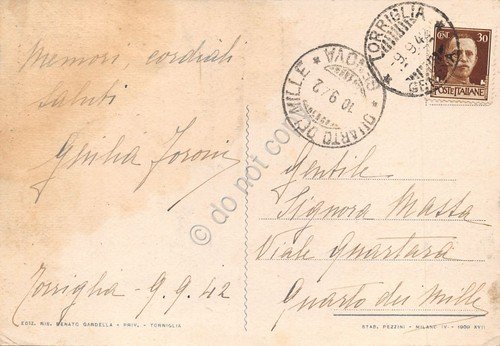 Memori, cordiali
saluti
Giulia
Torriglia - 9.9.42
EDIZ. RIS. RENATO GARDELLA - PRIV. - TORRIGLIA
TORRIGLIA
CENT 30
POSTE ITALIANE
QUARTO DEI MILLE * GENOVA *
10 9 42
Gentile
Signora Massa
Viale Quartara
Quarto dei Mille
STAB. PEZZINI - MILANO IV - 1939 XVII
© do not copy